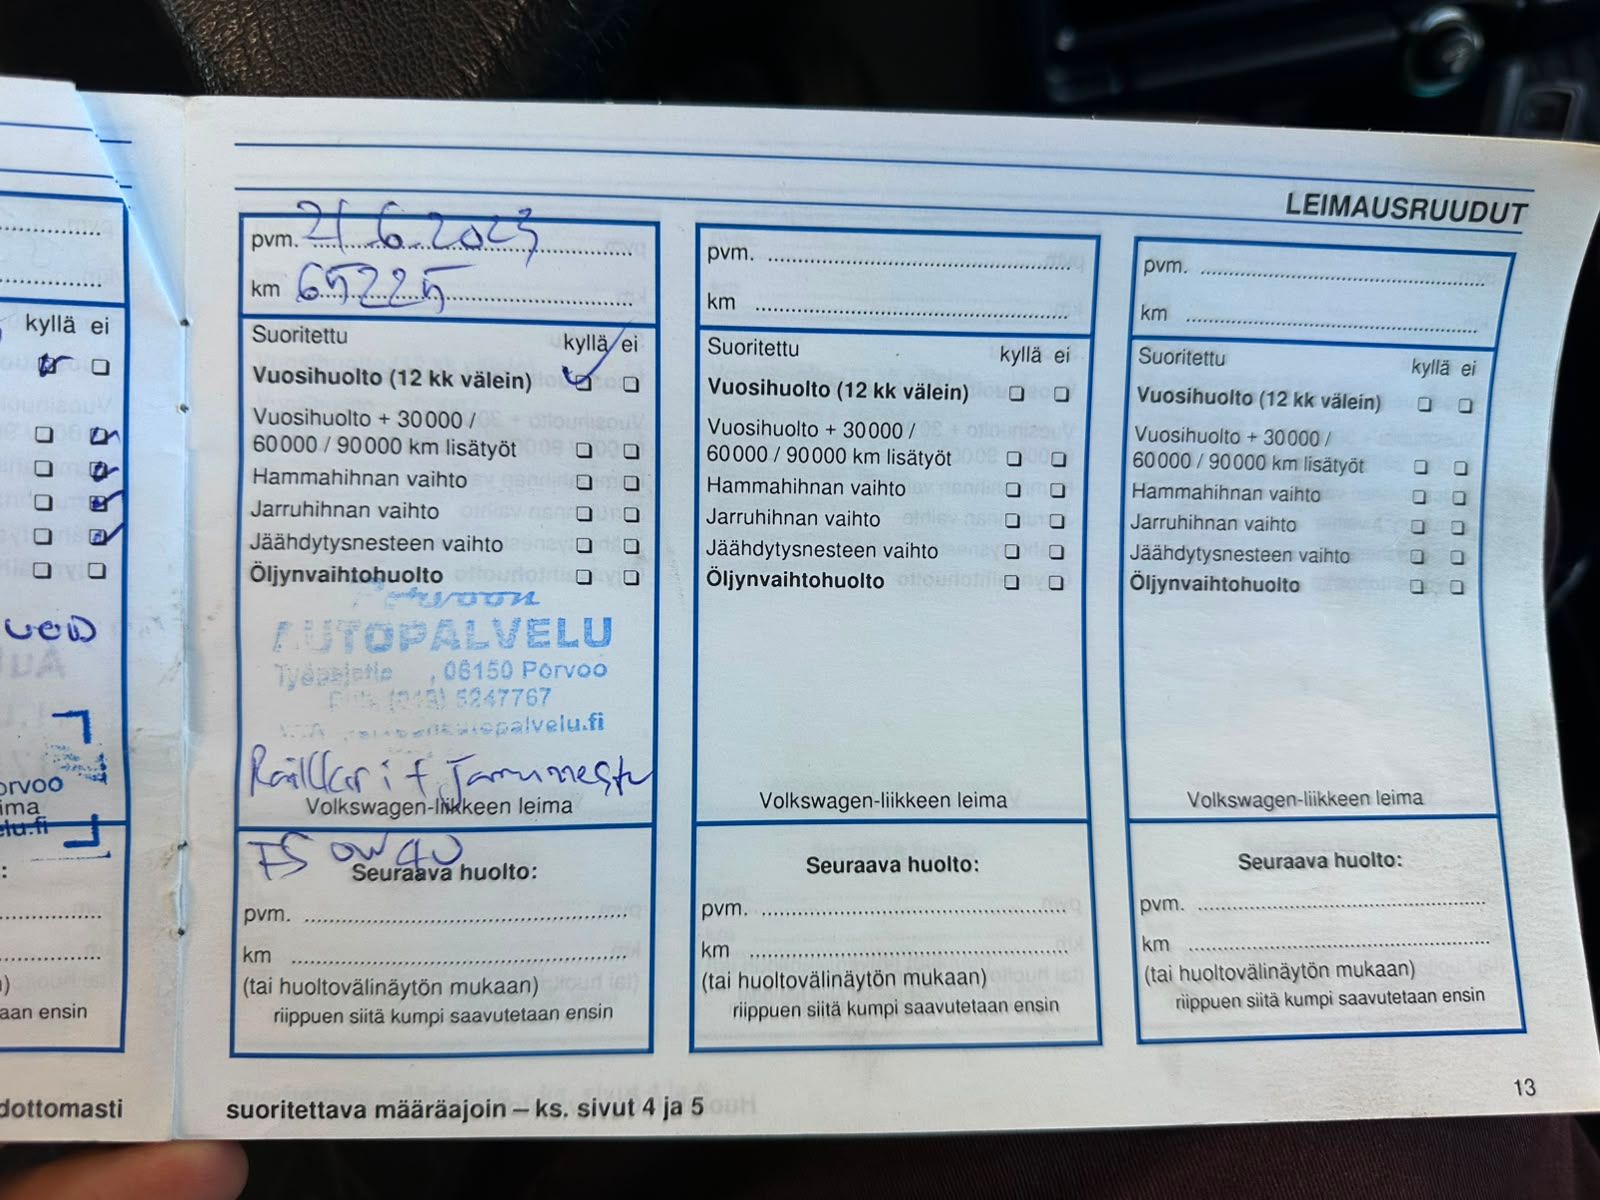 LEIMAUSRUUDUT
kyllä ei
orvoo
ima
elu.fi
:
)
aan ensin
dottomasti
pvm. 21.6.2023
km 65225
Suoritettu kyllä ei
Vuosihuolto (12 kk välein)
Vuosihuolto + 30 000 /
60 000 / 90 000 km lisätyöt
Hammahihnan vaihto
Jarruhihnan vaihto
Jäähdytysnesteen vaihto
Öljynvaihtohuolto
AUTOPALVELU
, 06150 Porvoo
5247767
autopalvelu.fi
Jarruneste
Volkswagen-liikkeen leima
FS 0W40
Seuraava huolto:
pvm.
km
(tai huoltovälinäytön mukaan)
riippuen siitä kumpi saavutetaan ensin
pvm.
km
Suoritettu kyllä ei
Vuosihuolto (12 kk välein)
Vuosihuolto + 30 000 /
60 000 / 90 000 km lisätyöt
Hammahihnan vaihto
Jarruhihnan vaihto
Jäähdytysnesteen vaihto
Öljynvaihtohuolto
Volkswagen-liikkeen leima
Seuraava huolto:
pvm.
km
(tai huoltovälinäytön mukaan)
riippuen siitä kumpi saavutetaan ensin
pvm.
km
Suoritettu kyllä ei
Vuosihuolto (12 kk välein)
Vuosihuolto + 30 000 /
60 000 / 90 000 km lisätyöt
Hammahihnan vaihto
Jarruhihnan vaihto
Jäähdytysnesteen vaihto
Öljynvaihtohuolto
Volkswagen-liikkeen leima
Seuraava huolto:
pvm.
km
(tai huoltovälinäytön mukaan)
riippuen siitä kumpi saavutetaan ensin
suoritettava määräajoin – ks. sivut 4 ja 5
13